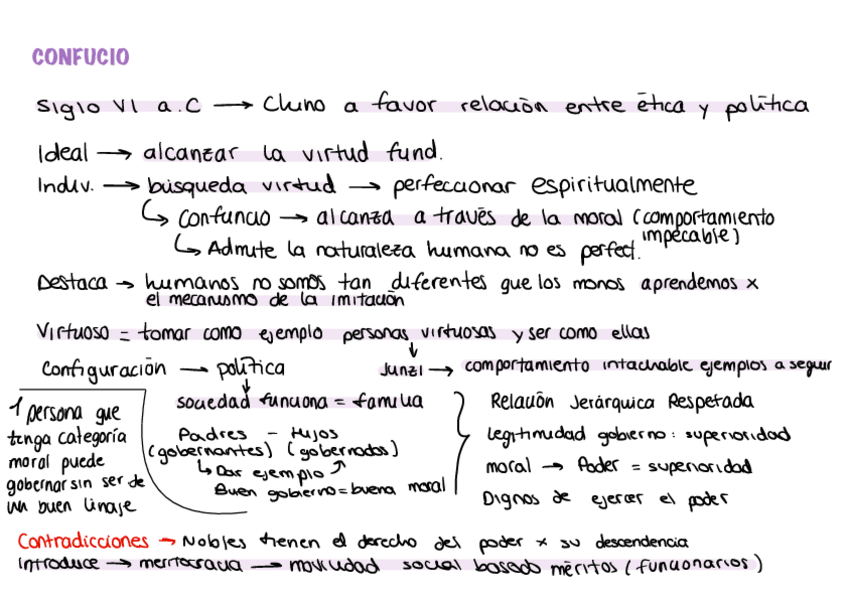 CONFUCIO
Siglo VI a.C → Chino a favor relación entre ética y política
Ideal → alcanzar la virtud fund.
Indiv. → búsqueda virtud → perfeccionar espiritualmente
↳ Confuncio → alcanza a través de la moral (comportamiento
impecable)
↳ Admite la naturaleza humana no es perfect.
Destaca → humanos no somos tan diferentes que los monos aprendemos x
el mecanismo de la imitación
Virtuoso = tomar como ejemplo personas virtuosas y ser como ellas
Configuración → política
Junzi → comportamiento intachable ejemplos a seguir
sociedad funciona = familia
Padres - Hijos
(gobernantes) (gobernados)
↳ Dar ejemplo
Buen gobierno = buena moral
Relación Jerárquica Respetada
Legitimidad gobierno: superioridad
moral → Poder = superioridad
Dignos de ejercer el poder
1 persona que
tenga categoría
moral puede
gobernar sin ser de
un buen linaje
Contradicciones → Nobles tienen el derecho del poder x su descendencia
Introduce → meritocracia → movilidad social basado méritos (funcionarios)